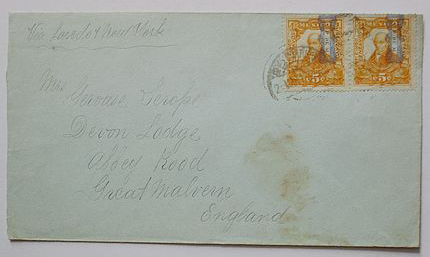 Via Laredo & New York
Mrs
Gervase Scrope
Devon Lodge,
Abbey Road
Great Malvern
England
5 5